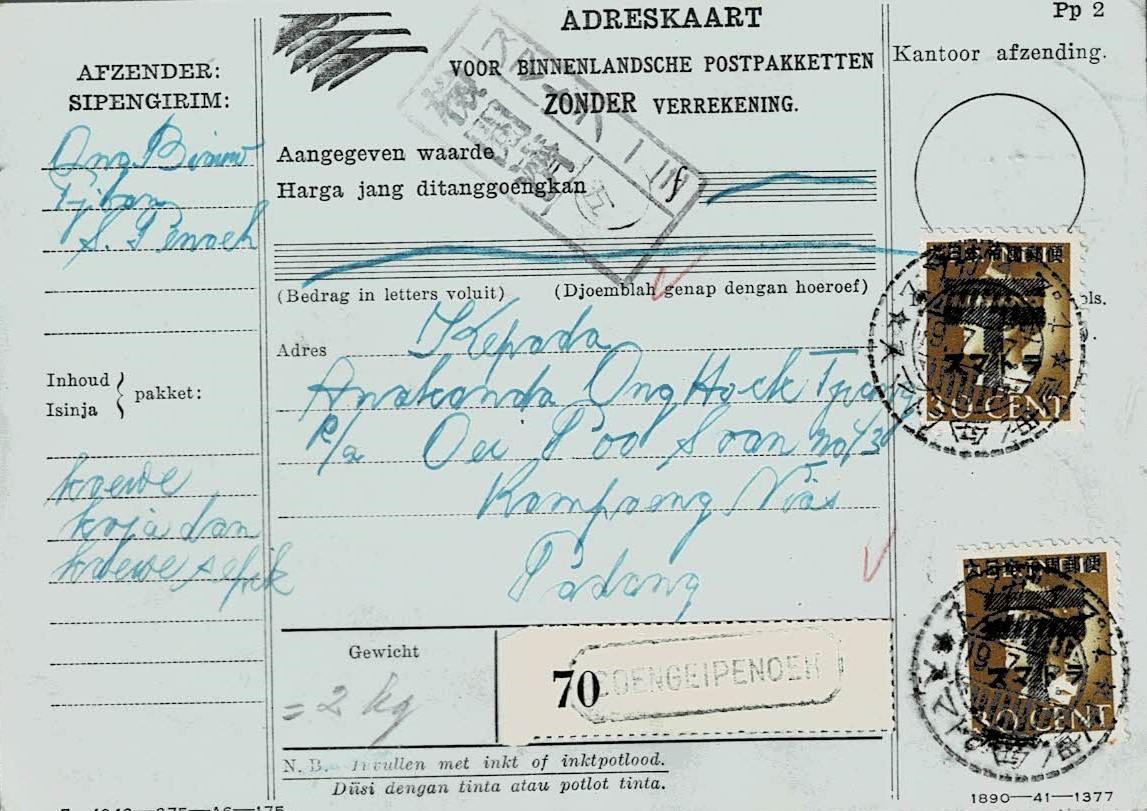 ADRESKAART
Pp 2
VOOR BINNENLANDSCHE POSTPAKKETTEN
ZONDER VERREKENING.
Kantoor afzending.
AFZENDER:
SIPENGIRIM:
Ong
S. Penoeh
Aangegeven waarde
Harga jang ditanggoengkan
(Bedrag in letters voluit) (Djoemblah genap dengan hoeroef)
Adres Kepada
Anakanda Ong Hock
P/a Oei Poo Soan no/3
Kampoeng Nias
Padang
Inhoud
Isinja
pakket:
koewe
koja dan
koewe sepik
大日本帝國郵便
スマトラ
30 CENT
大日本帝國郵便
スマトラ
30 CENT
Gewicht
= 2 kg
70
SOENGEIPENOEH
N. B. Invullen met inkt of inktpotlood.
Diïsi dengan tinta atau potlot tinta.
1890—41—1377